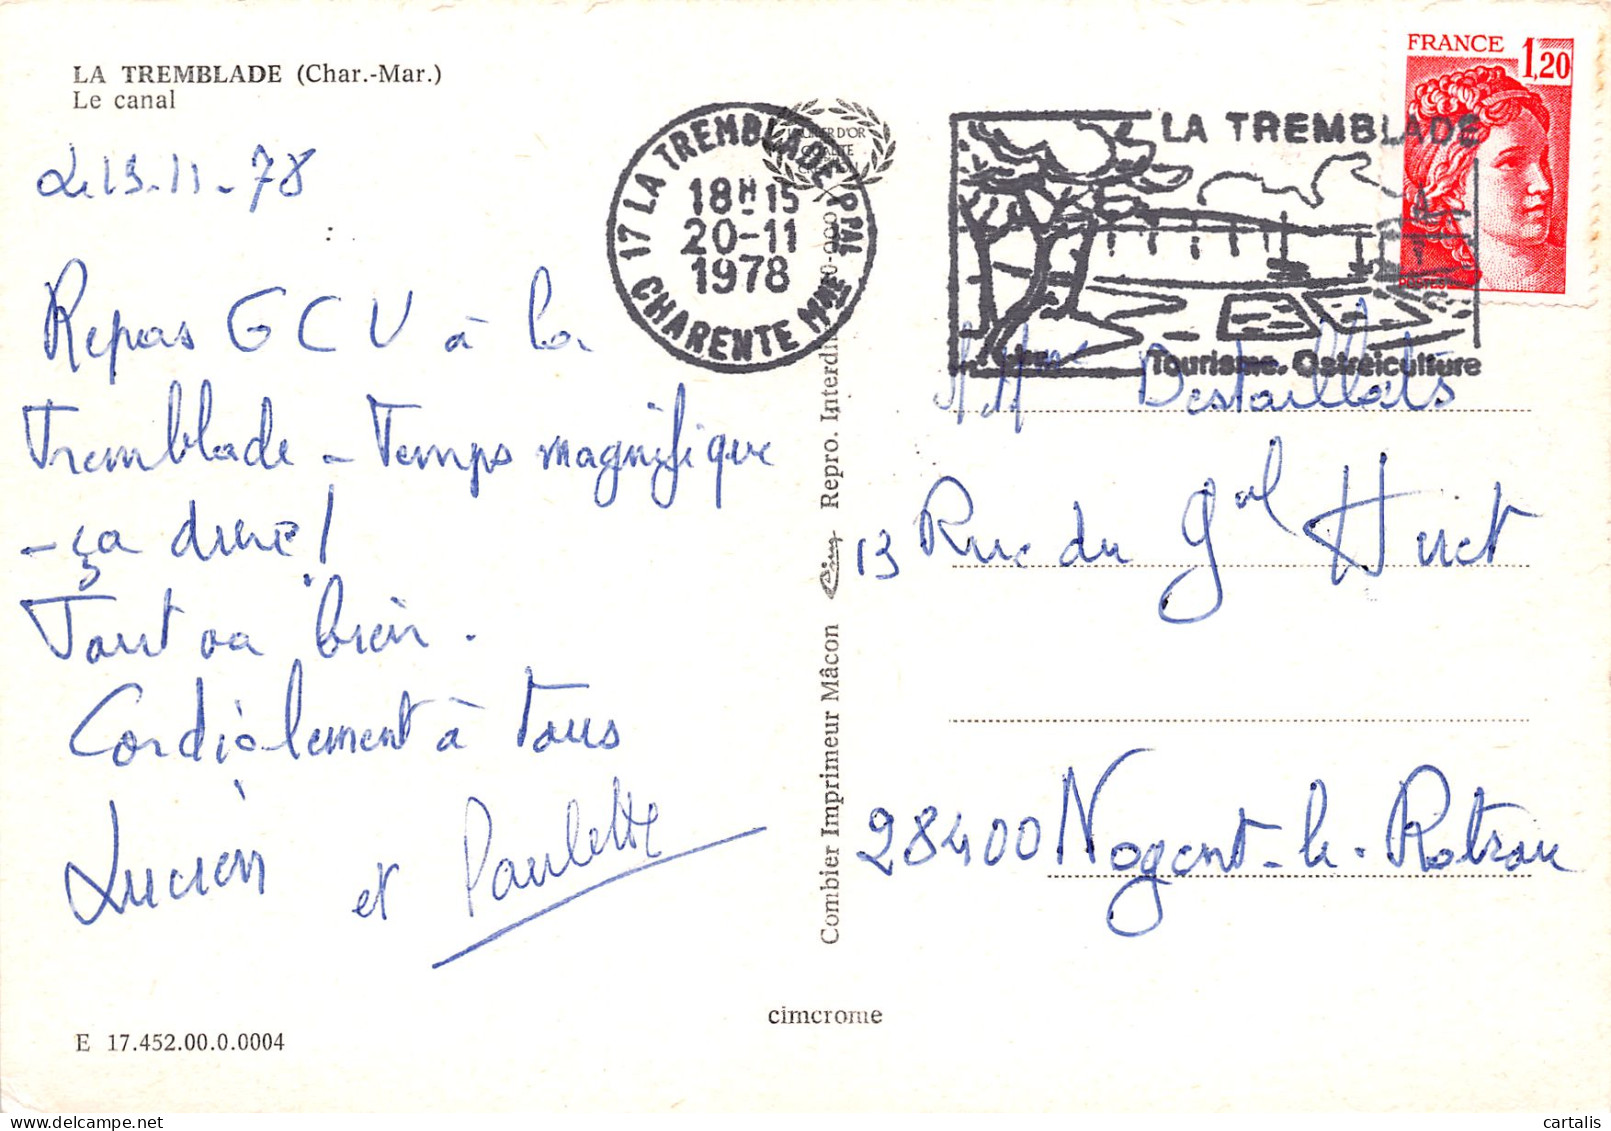 LA TREMBLADE (Char.-Mar.)
Le canal
Le 13-11-78
Repas GCV à la
Tremblade - Temps magnifique
- ça dure !
Tout va bien.
Cordialement à tous
Lucien et Paulette
E 17.452.00.0.0004
17 LA TREMBLADE PPAL
18H15
20-11
1978
CHARENTE MME
LAURIER D'OR
QUALITE
LA TREMBLADE
Tourisme. Ostréiculture
FRANCE 1,20
POSTES
Combier Imprimeur Mâcon Cim Repro. Interdite
cimcrome
Destaillats
13 Rue du Gal Huet
28400 Nogent-le-Rotrou
cartalis